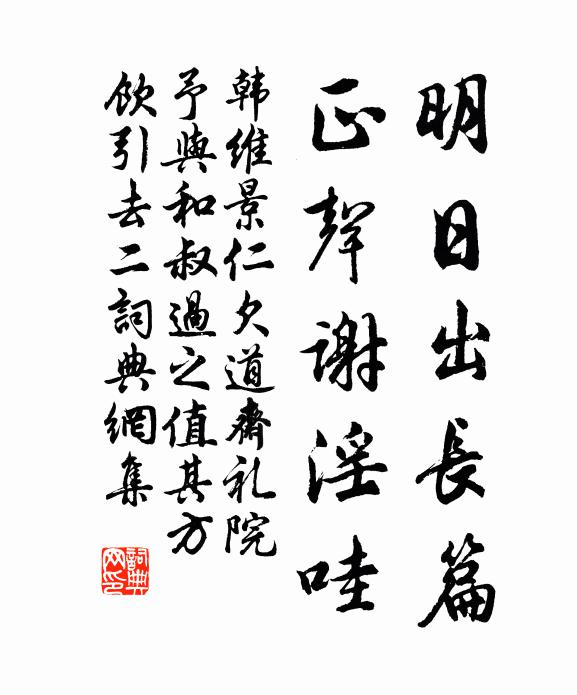 明日出长篇
正声謝淫哇
韩维景仁久道齋礼院
予與和叔過之值其方
飲引去二詞典網集
詞典
网